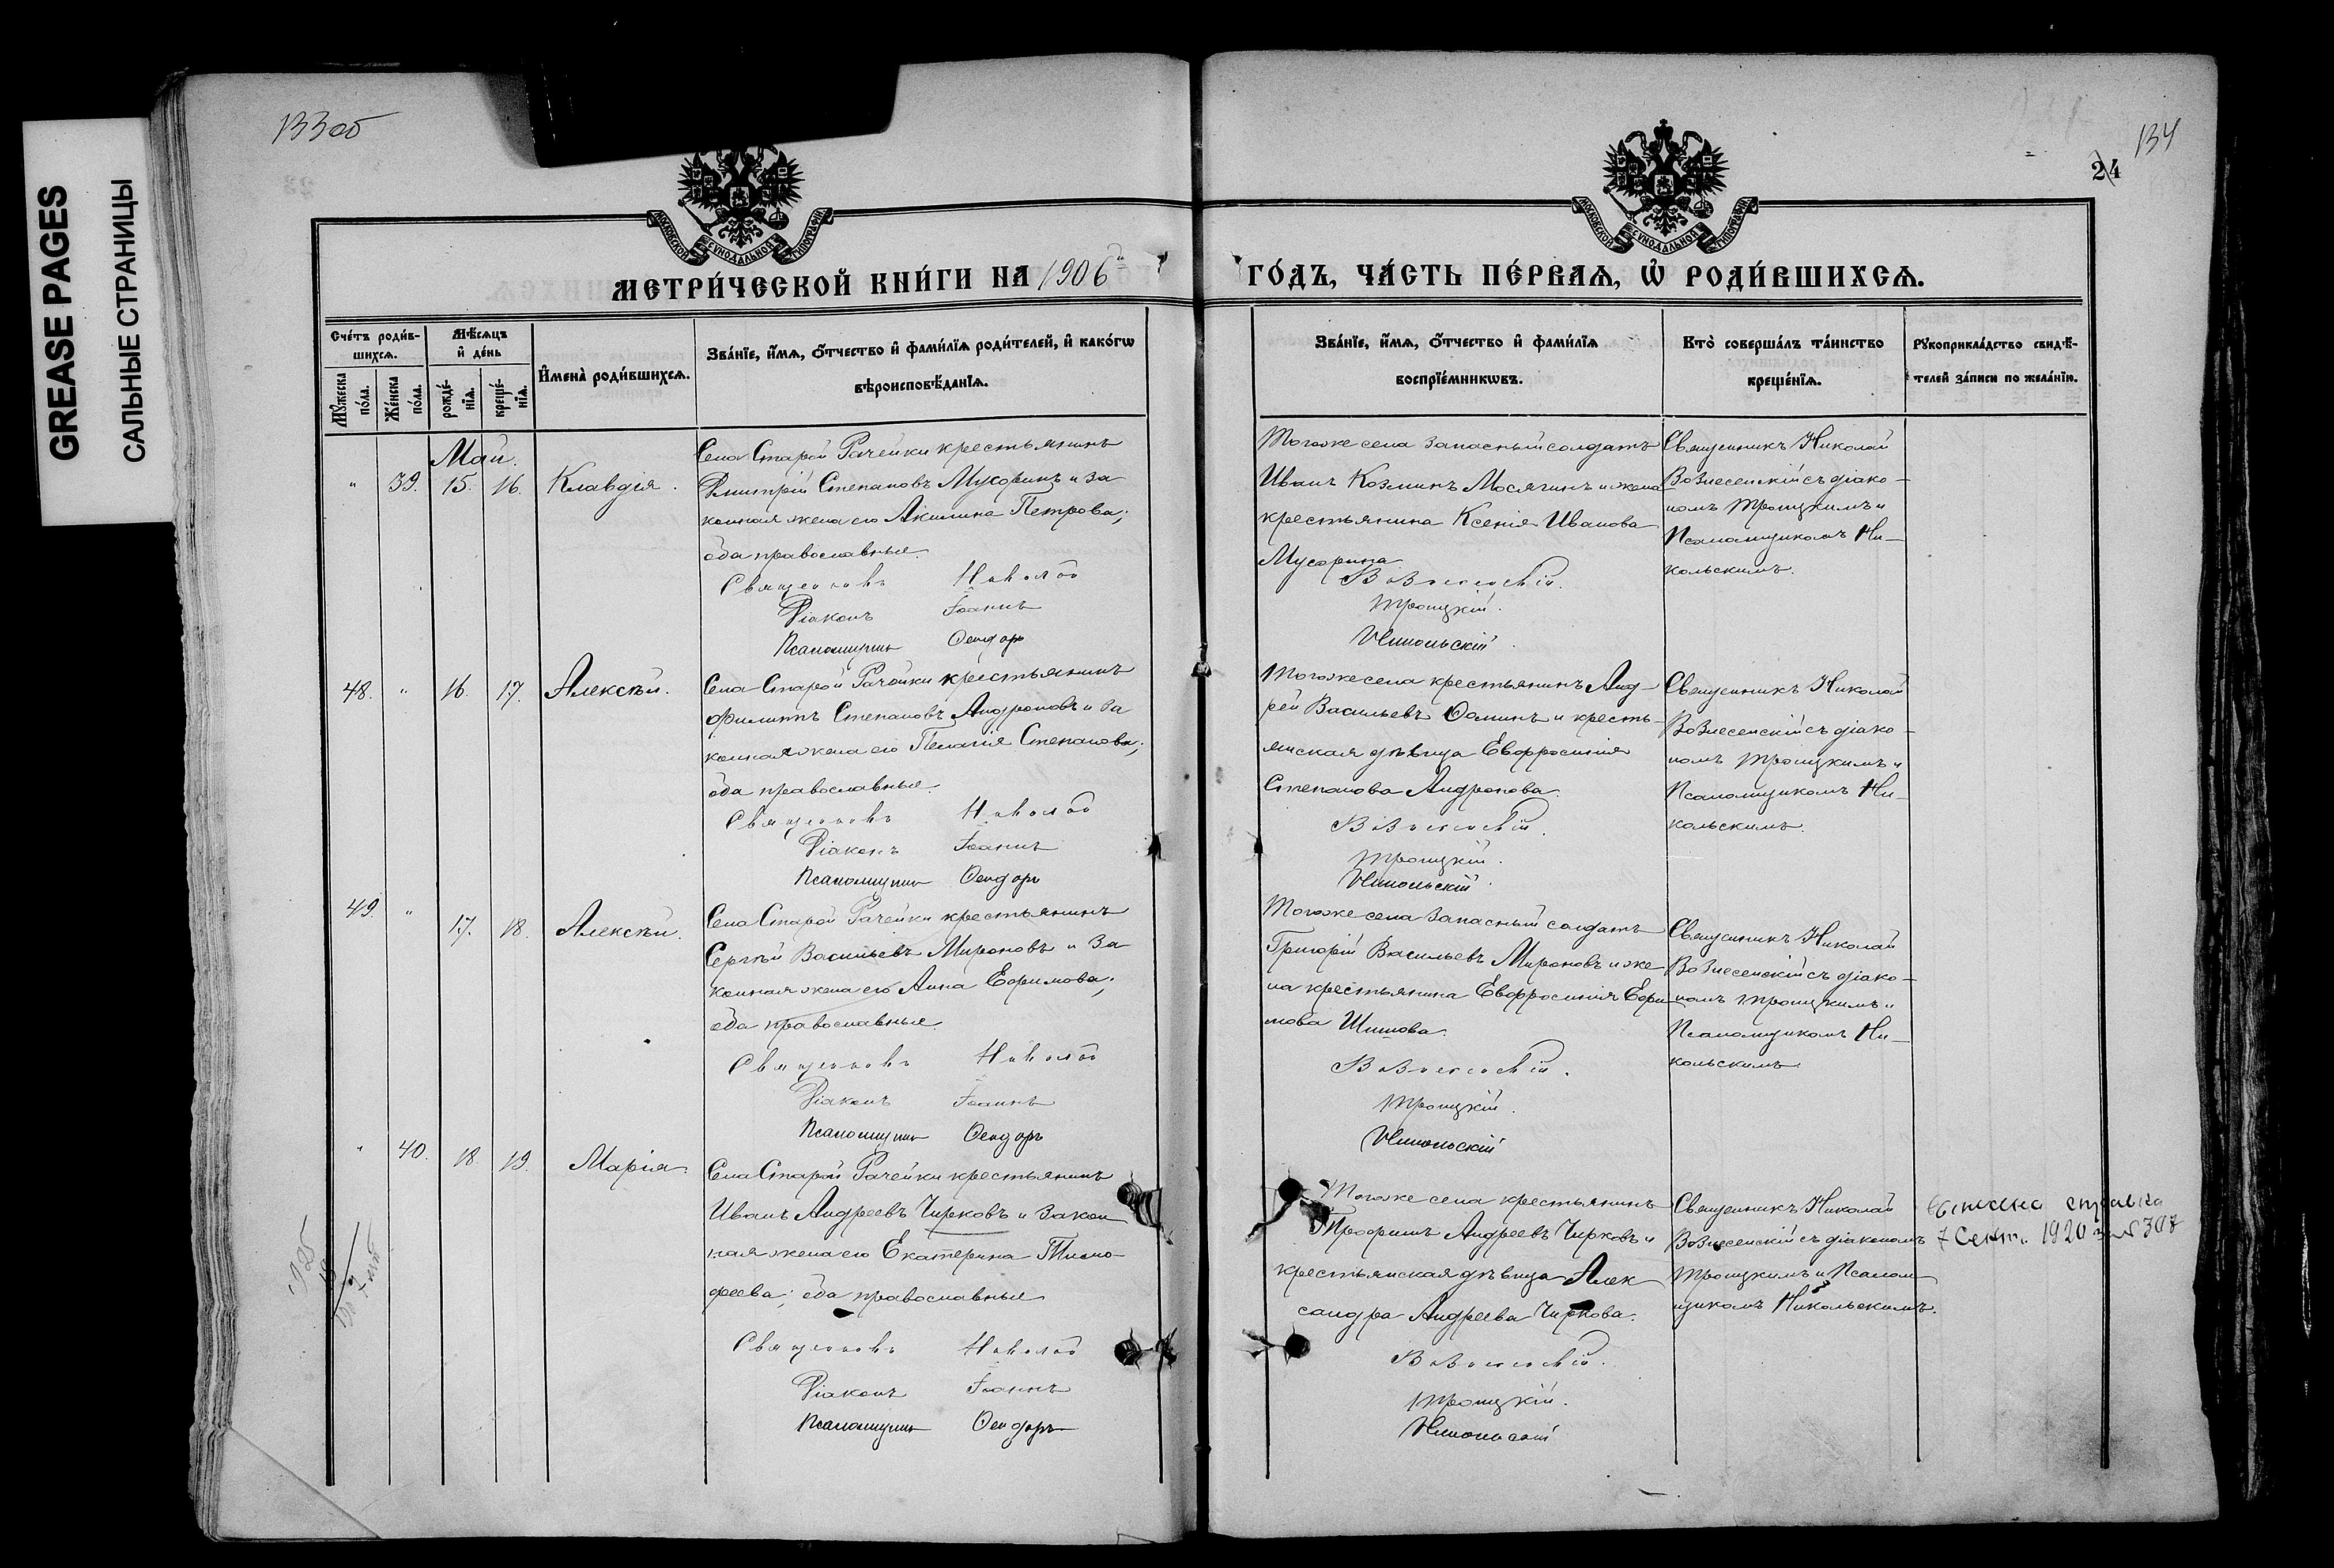 GREASE PAGES
САЛЬНЫЕ СТРАНИЦЫ
133об
134
24
МОСКОВСКОЙ СѴНОДАЛЬНОЙ ТИПОГРАФІИ
МОСКОВСКОЙ СѴНОДАЛЬНОЙ ТИПОГРАФІИ
МЕТРИ́ЧЕСКОЙ КНИ́ГИ НА 1906й
ГО́ДЪ, ЧА́СТЬ ПЕ́РВАѦ, Ѡ҆ РОДИ́ВШИХСѦ.
Сче́тъ роди́в-
шихсѧ.
Мꙋ́жеска по́ла.
Же́нска по́ла.
Мѣ́сѧцъ
и҆ де́нь
рожде́-
нїѧ.
креще́-
нїѧ.
И҆мена̀ роди́вшихсѧ.
Зва́нїе, и҆́мѧ, ѻ҆́тчество и҆ фами́лїѧ роди́телей, и҆ како́гѡ
вѣроисповѣ́данїѧ.
Зва́нїе, и҆́мѧ, ѻ҆́тчество и҆ фами́лїѧ
воспрїе́мникѡвъ.
Кто̀ соверша́лъ та́инство
креще́нїѧ.
Рꙋкоприкла́дство свидѣ́-
телей за́писи по жела́нїю.
Май.
" 39. 15. 16. Клавдія.
Села Старой Рачейки крестьянинъ
Дмитрій Степановъ Мусоринъ и за
конная жена его Акилина Петрова;
оба православные.
Священникъ Николай
Діаконъ Іоаннъ
Псаломщикъ Ѳеодоръ
Тогоже села запасный солдатъ
Иванъ Козминъ Мосягинъ и жена
крестьянина Ксенія Иванова
Мусорина
Вознесенскій.
Троицкій.
Никольскій.
Священникъ Николай
Вознесенскій съ діако-
номъ Троицкимъ и
Псаломщикомъ Ни-
кольскимъ.
48. " 16. 17. Алексѣй.
Села Старой Рачейки крестьянинъ
Филиппъ Степановъ Андроновъ и за
конная жена его Пелагія Степанова;
оба православные.
Священникъ Николай
Діаконъ Іоаннъ
Псаломщикъ Ѳеодоръ
Тогоже села крестьянинъ Анд-
рей Васильевъ Ѳоминъ и кресть-
янская дѣвица Евфросинія
Степанова Андронова.
Вознесенскій.
Троицкій.
Никольскій.
Священникъ Николай
Вознесенскій съ діако-
номъ Троицкимъ и
Псаломщикомъ Ни-
кольскимъ.
49. " 17. 18. Алексѣй.
Села Старой Рачейки крестьянинъ
Сергѣй Васильевъ Мироновъ и за
конная жена его Анна Ефимова;
оба православные
Священникъ Николай
Діаконъ Іоаннъ
Псаломщикъ Ѳеодоръ
Тогоже села запасный солдатъ
Григорій Васильевъ Мироновъ и же-
на крестьянина Евфросинія Ефи-
мова Шишова.
Вознесенскій.
Троицкій.
Никольскій
Священникъ Николай
Вознесенскій съ діако-
номъ Троицкимъ и
Псаломщикомъ Ни-
кольскимъ.
" 40. 18. 19. Марія.
Села Старой Рачейки крестьянинъ
Иванъ Андреевъ Чирковъ и закон
ная жена его Екатерина Тимо-
феева; оба православные
Священникъ Николай
Діаконъ Іоаннъ
Псаломщикъ Ѳеодоръ
Тогоже села крестьянинъ
Трофимъ Андреевъ Чирковъ и
крестьянская дѣвица Алек
сандра Андреева Чиркова.
Вознесенскій.
Троицкій.
Никольскій
Священникъ Николай
Вознесенскій съ діакономъ
Троицкимъ и Псалом-
щикомъ Никольскимъ.
выписка справка
7 Сент. 1920 № 307